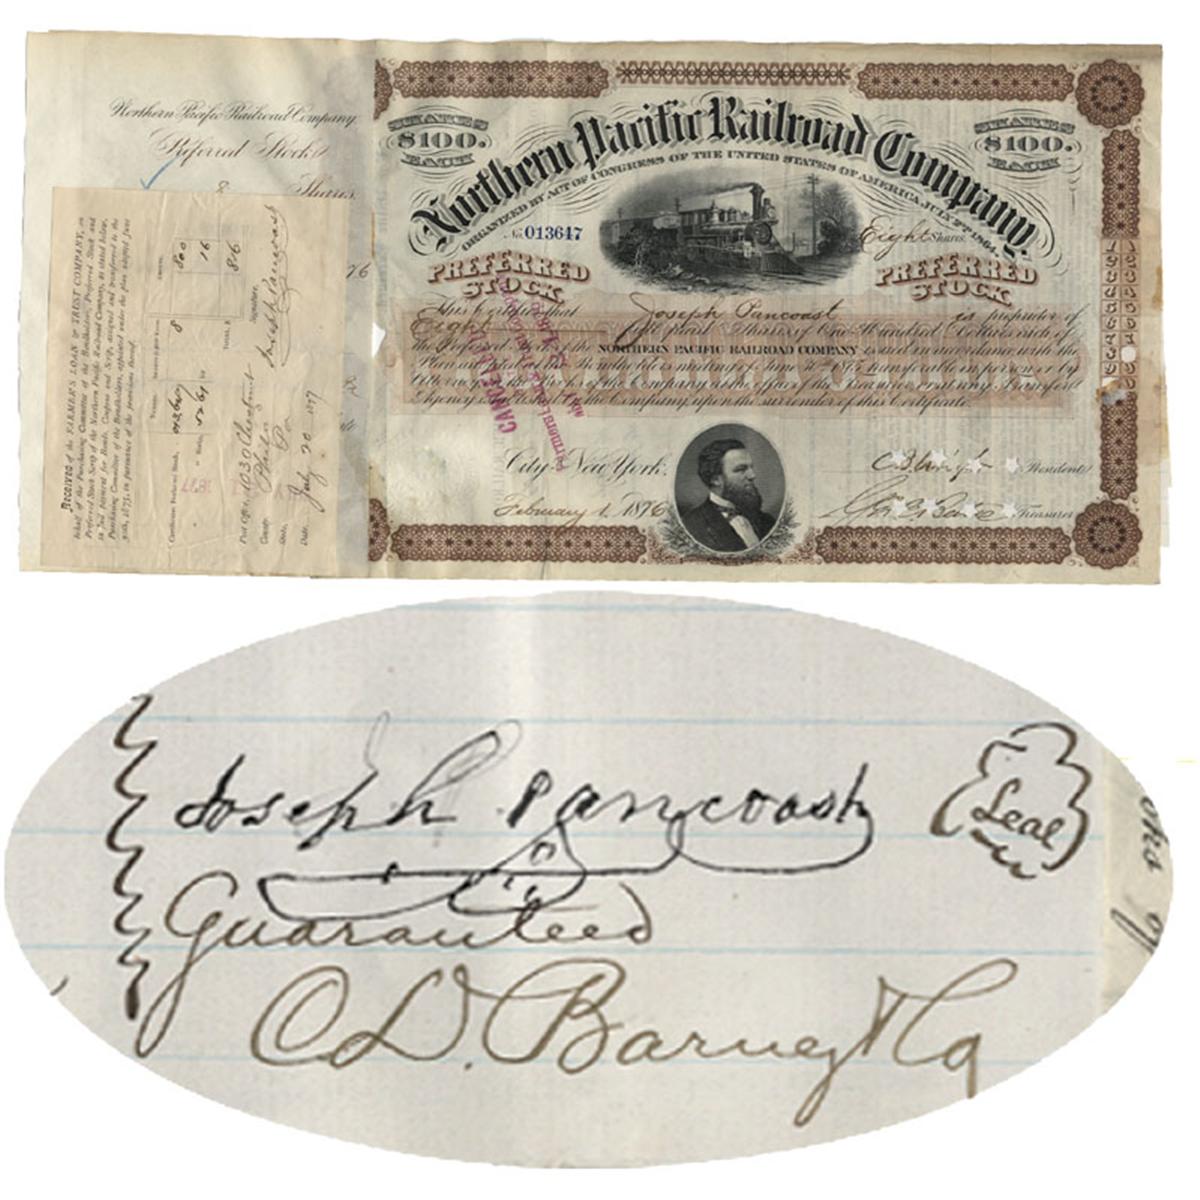 Northern Pacific Railroad Company
Preferred Stock
8 Shares.
Received of the FARMERS LOAN & TRUST COMPANY, on
behalf of the Purchasing Committee of the Bondholders, Preferred Stock and
Preferred Stock Scrip of the Northern Pacific Railroad Company, as stated below,
in full payment for Bonds, Coupons and Scrip, assigned and transferred to the
Purchasing Committee of the Bondholders, appointed under the plan adopted June
30th, 1875, in pursuance of the provisions thereof.
Certificate Preferred Stock, 013,647 8 800
16
TOTAL, $ 816
Signature,
Joseph Pancoast
Post Office 1030 Chestnut
County Phila
State, Pa
Date, July 20 1877
SHARES $100. EACH
Northern Pacific Railroad Company
SHARES $100. EACH
ORGANIZED BY ACT OF CONGRESS OF THE UNITED STATES OF AMERICA, JULY 2ND 1864.
No. 013647
Eight Shares.
PREFERRED STOCK
PREFERRED STOCK
This Certifies that Joseph Pancoast is proprietor of
Eight full paid Shares of One Hundred Dollars each of
the Preferred Stock of the NORTHERN PACIFIC RAILROAD COMPANY issued in accordance with the
Plan adopted at the Bondholders meeting of June 30th 1875 transferable in person or by
Attorney on the Books of the Company at the office of the Treasurer or at any Transfer
Agency established by the Company upon the surrender of this Certificate.
CANCELLED
City of New York.
February 1. 1876
President
Treasurer
Joseph Pancoast
Seal
Guaranteed
C D. Barney & Co